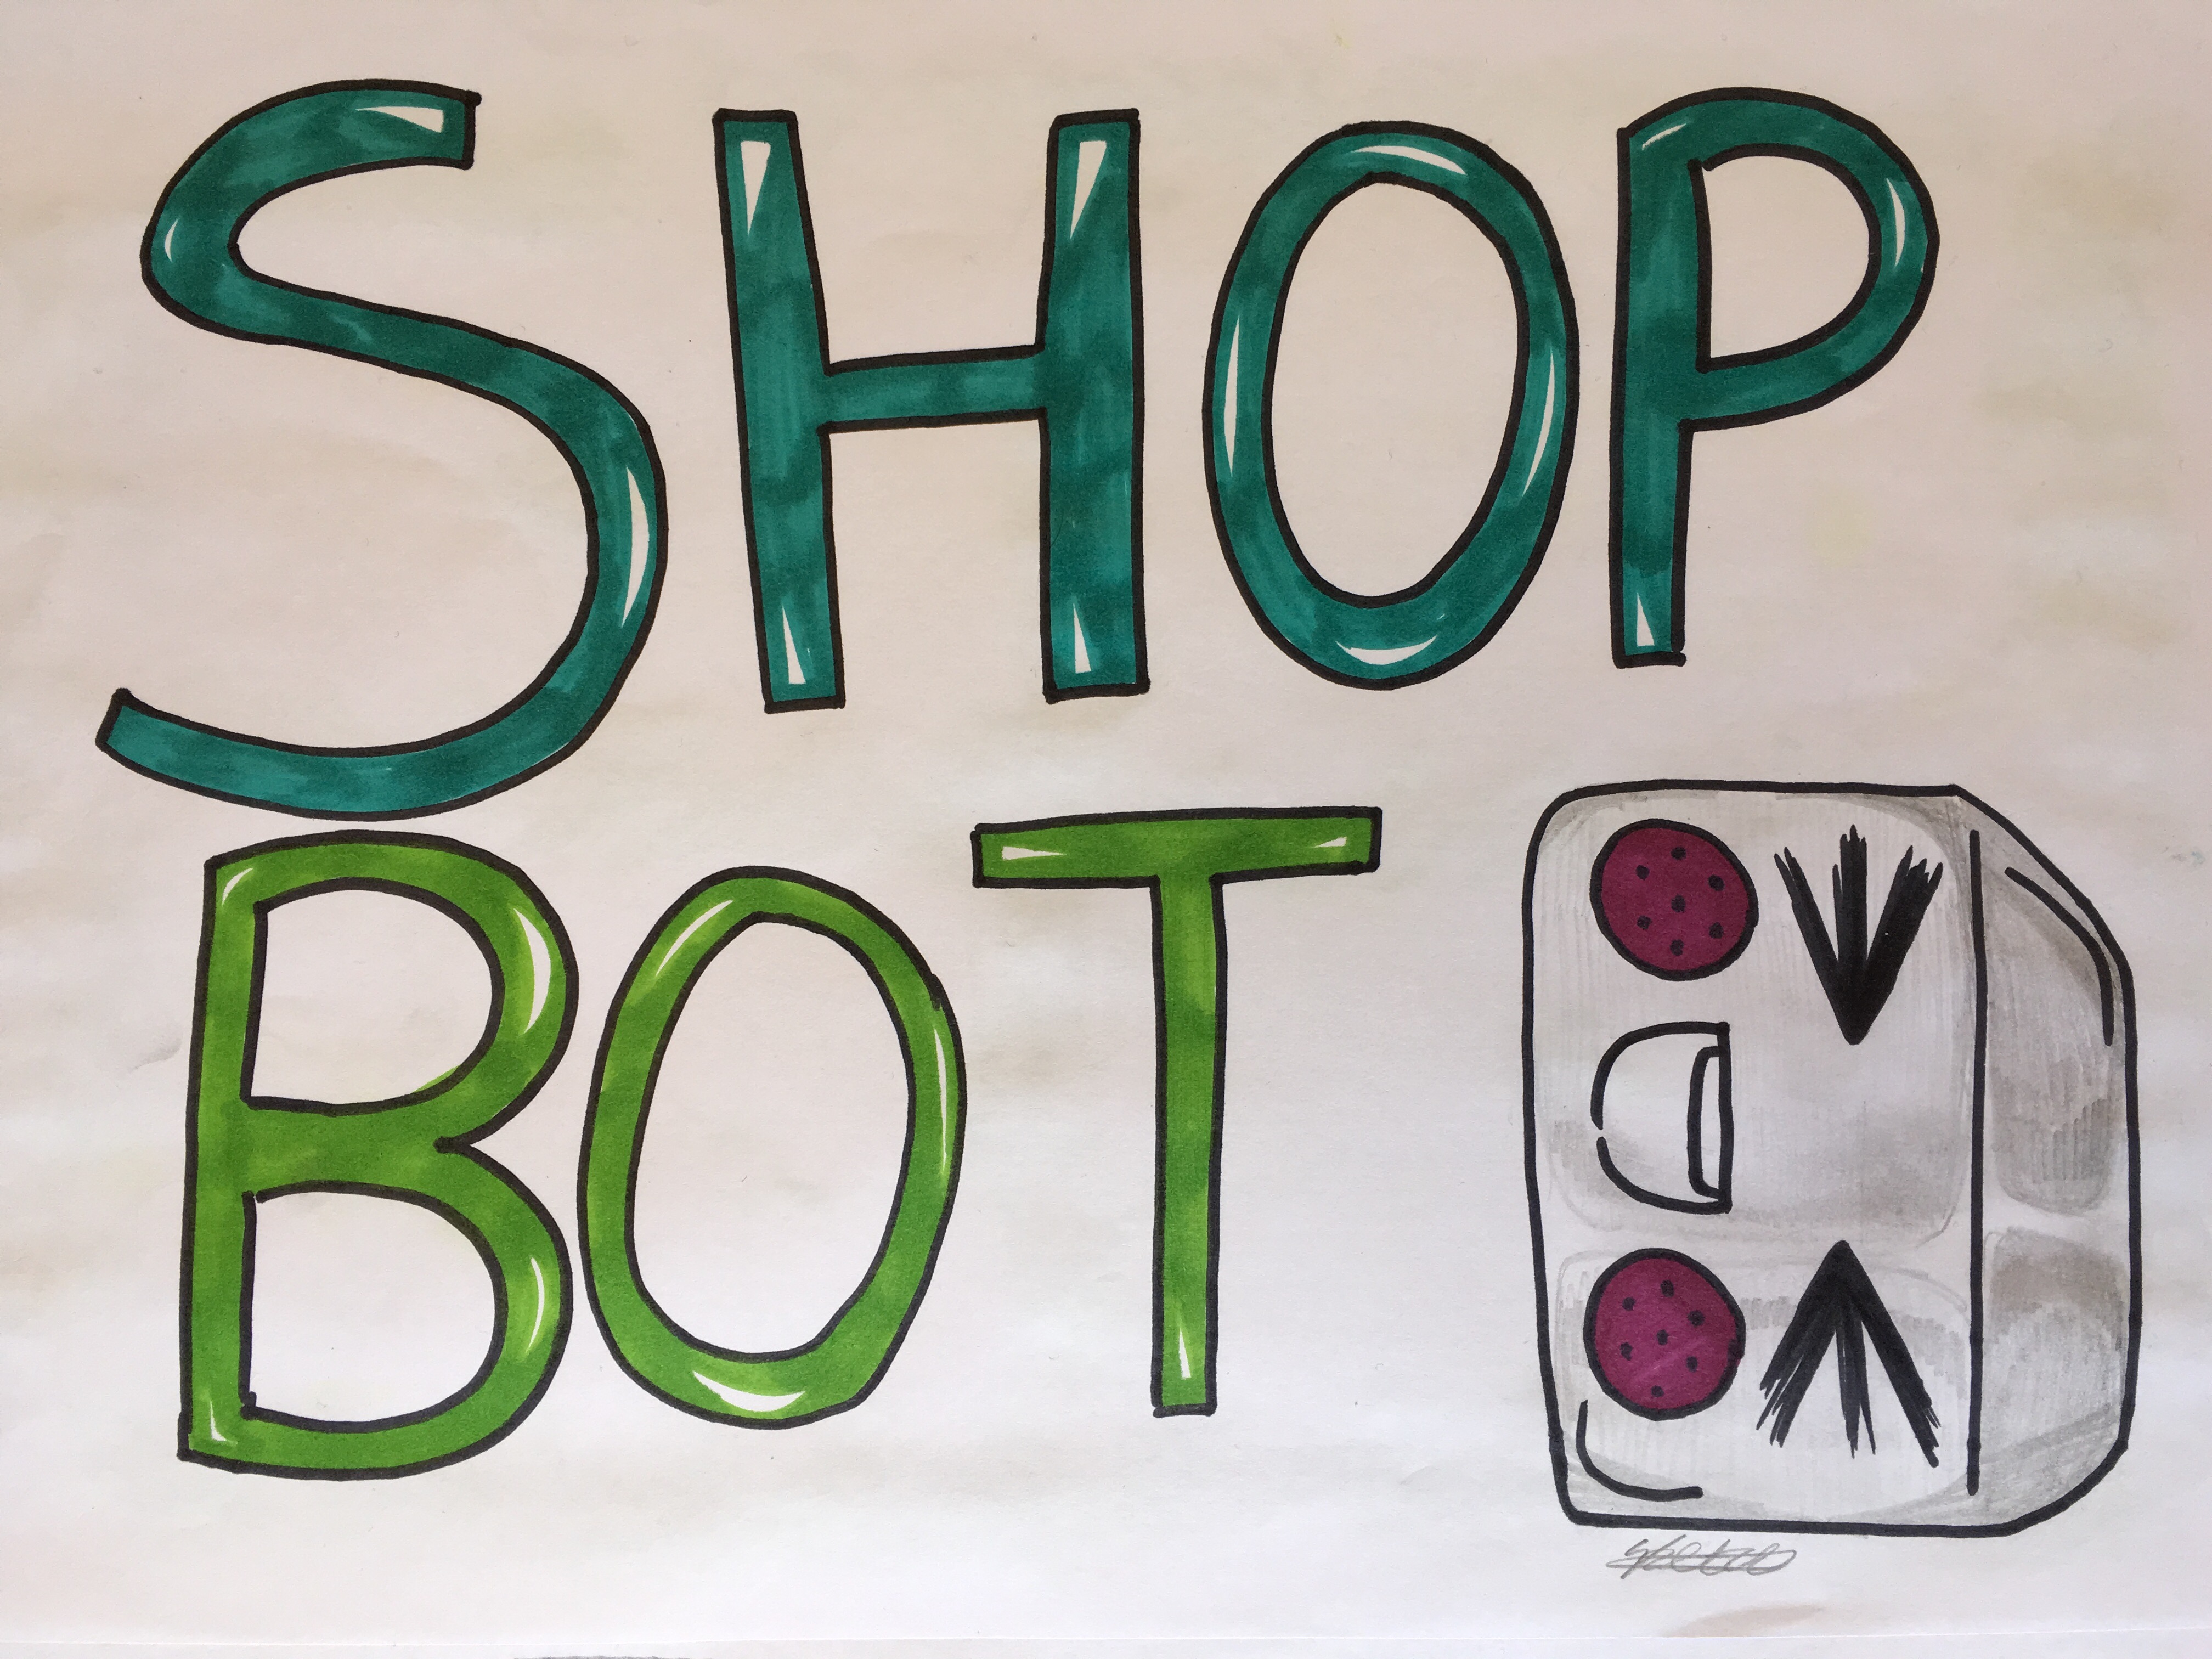 SHOP
BOT